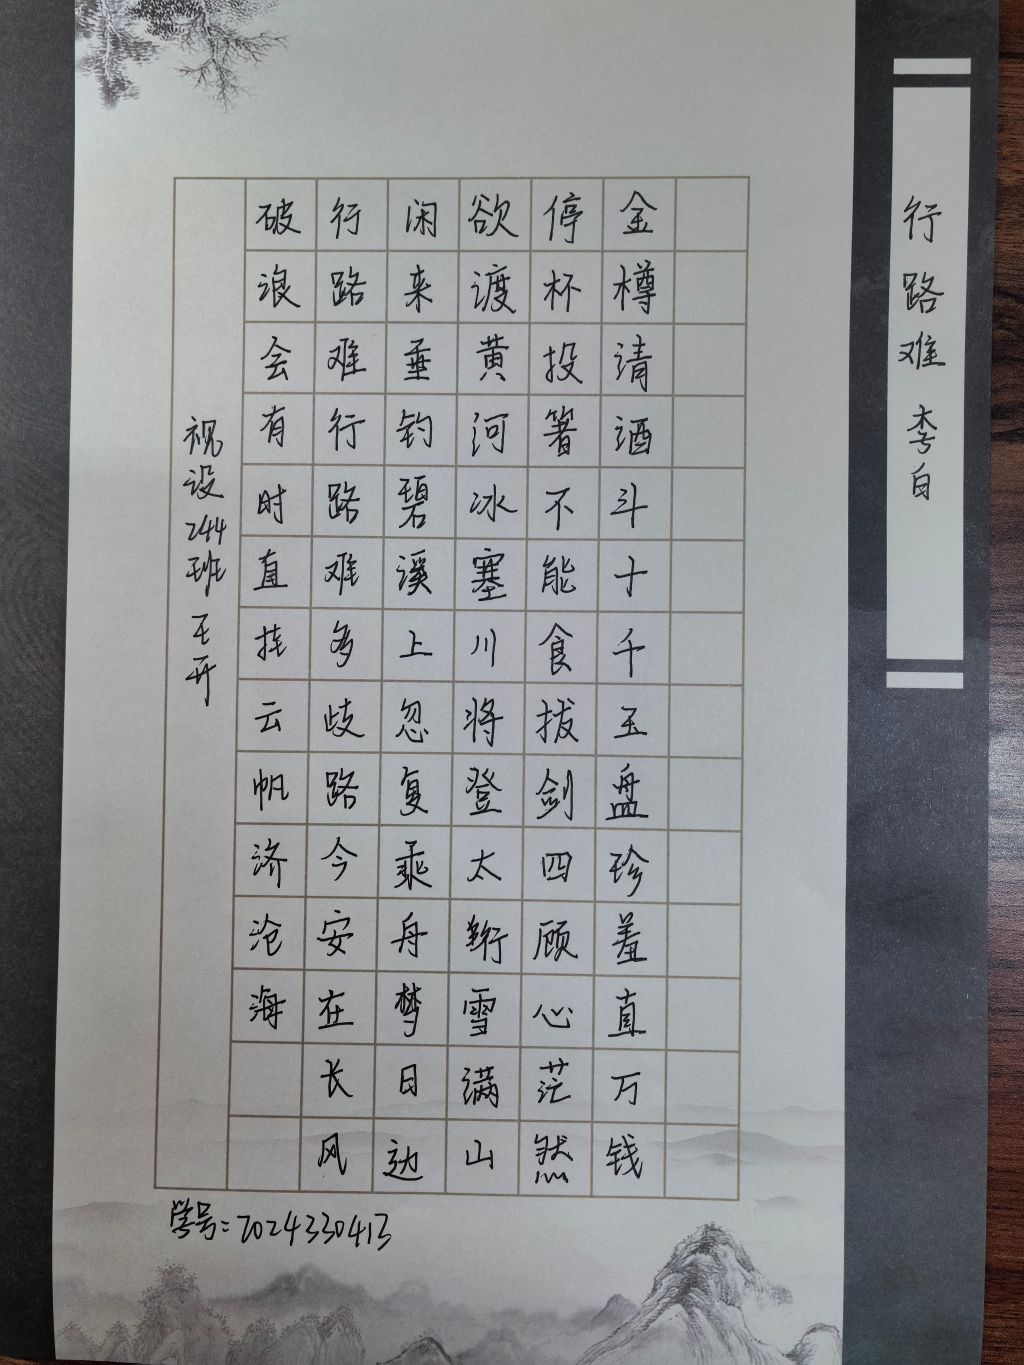 行路难 李白
金樽清酒斗十千玉盘珍羞直万钱
停杯投箸不能食拔剑四顾心茫然
欲渡黄河冰塞川将登太行雪满山
闲来垂钓碧溪上忽复乘舟梦日边
行路难行路难多歧路今安在长风
破浪会有时直挂云帆济沧海
视设244班 王开
学号：2024330413